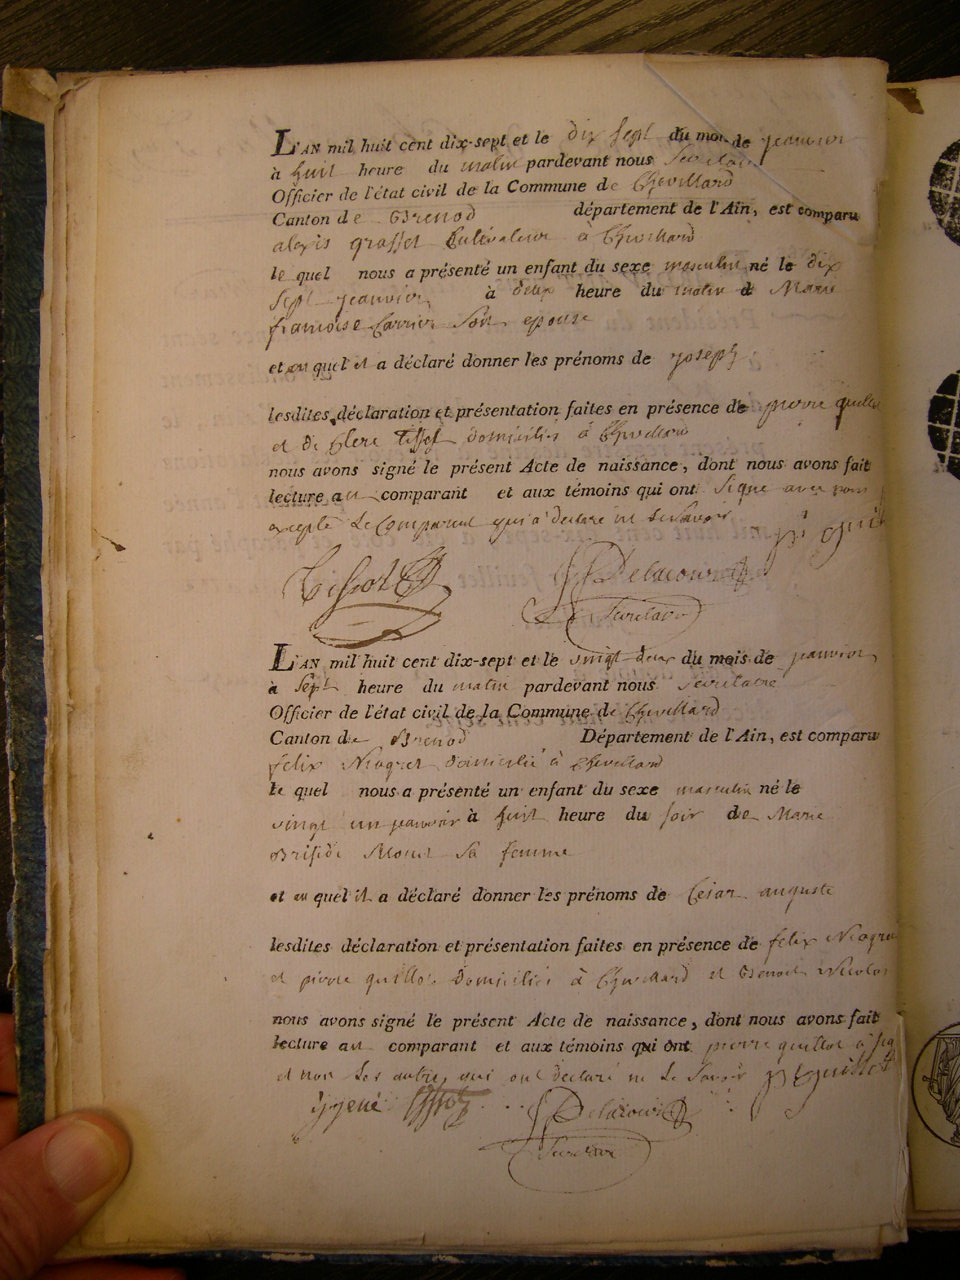 L'AN mil huit cent dix-sept et le dix sept du mois de jeanvier
à huit heure du matin pardevant nous Secretaire
Officier de l'état civil de la Commune de Chevillard
Canton de Brenod département de l'Ain, est comparu
alexis grosset Cultivateur à Chevillard
le quel nous a présenté un enfant du sexe masculin né le dix
sept jeanvier à deux heure du matin de Marie
francoise Carrier son epouse
et au quel il a déclaré donner les prénoms de joseph
lesdites déclaration et présentation faites en présence de pierre quillot
et de Tissot domiciliés à Chevillard
nous avons signé le présent Acte de naissance, dont nous avons fait
lecture au comparant et aux témoins qui ont signé avec nous
excepté le Comparant qui a declare ne le savoir
Tissot Delacour
Secretaire
L'AN mil huit cent dix-sept et le vingt deux du mois de jeanvier
à sept heure du matin pardevant nous Secretaire
Officier de l'état civil de la Commune de Chevillard
Canton de Brenod Département de l'Ain, est comparu
felix Niogret domicilié à Chevillard
le quel nous a présenté un enfant du sexe masculin né le
vingt un jeanvier à huit heure du soir de Marie
Briside sa femme
et au quel il a déclaré donner les prénoms de Cesar auguste
lesdites déclaration et présentation faites en présence de felix Niogret
et pierre quillot domiciliés à Chevillard et Benoit Nicolas
nous avons signé le présent Acte de naissance, dont nous avons fait
lecture au comparant et aux témoins qui ont pierre quillot a
et non les autres qui ont declaré ne le savoir p quillot
Delacour
Secretaire